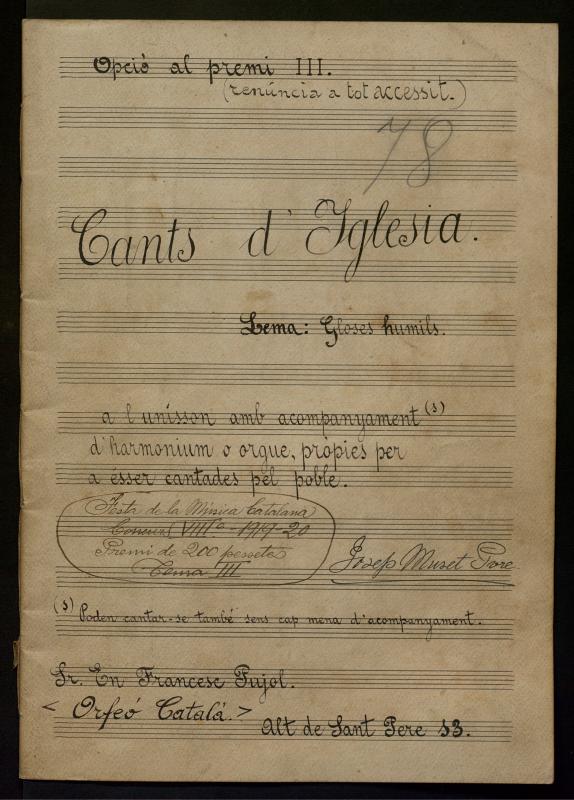 Opció al premi III.
(renúncia a tot accessit.)
78
Cants d'Iglesia.
Lema: Gloses humils.
a l'unísson amb acompanyament (s)
d'harmonium o orgue, pròpies per
a ésser cantades pel poble.
Festa de la Música Catalana
Concurs VIIIè - 1919-20
Premi de 200 pessetes
Tema III
Josep Muset Pvre
(s) Poden cantar-se també sens cap mena d'acompanyament.
Sr. En Francesc Pujol.
< Orfeó Català. >
Alt de Sant Pere 13.